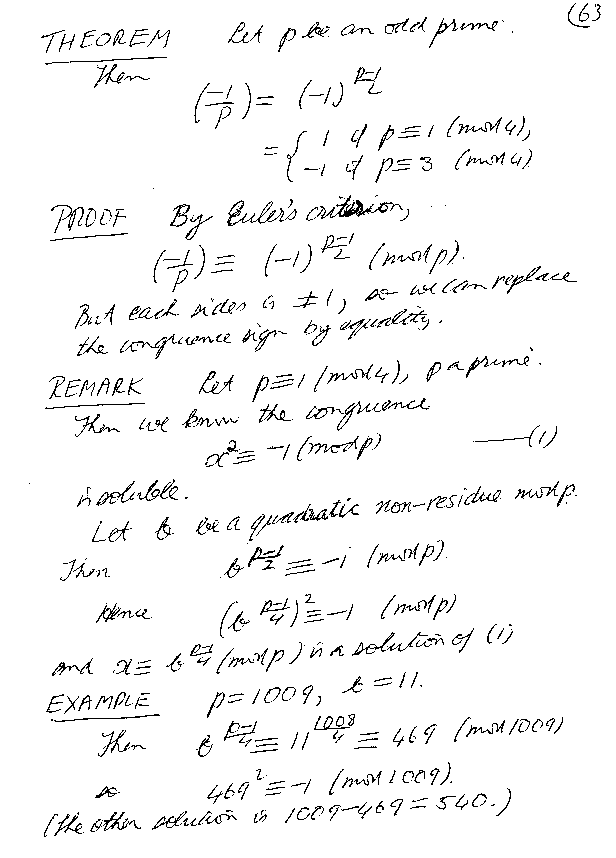 (63
THEOREM Let p be an odd prime.
Then
(-1/p) = (-1)^{(p-1)/2}
= { 1 if p ≡ 1 (mod 4),
-1 if p ≡ 3 (mod 4)
PROOF By Euler's criterion,
(-1/p) ≡ (-1)^{(p-1)/2} (mod p).
But each sides is ±1, so we can replace
the congruence sign by equality.
REMARK Let p ≡ 1 (mod 4), p a prime.
Then we know the congruence
x² ≡ -1 (mod p) —(1)
is soluble.
Let b be a quadratic non-residue mod p.
Then b^{(p-1)/2} ≡ -1 (mod p).
Hence (b^{(p-1)/4})² ≡ -1 (mod p)
and x ≡ b^{(p-1)/4} (mod p) is a solution of (1)
EXAMPLE p = 1009, b = 11.
Then b^{(p-1)/4} ≡ 11^{1008/4} ≡ 469 (mod 1009)
so 469² ≡ -1 (mod 1009).
(The other solution is 1009-469 = 540.)